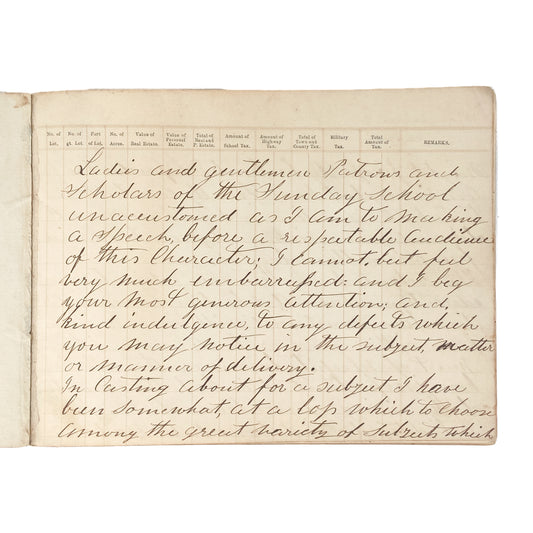 No. of Lot. No. of gt. Lot. Part of Lot. No. of Acres. Value of Real Estate. Value of Personal Estate. Total of Real and P. Estate. Amount of School Tax. Amount of Highway Tax. Total of Town and County Tax. Military Tax. Total Amount of Tax. REMARKS.
Ladies and gentlemen Patrons and
Scholars of the Sunday School
unaccustomed as I am to making
a speech, before a respectable Audience
of this Character; I cannot, but feel
very much embarrassed: and I beg
your most generous attention; and,
kind indulgence, to any defects which
you may notice in the subject, matter
or manner of delivery.
In Casting about for a subject I have
been somewhat, at a loss which to choose
among the great variety of subjects which